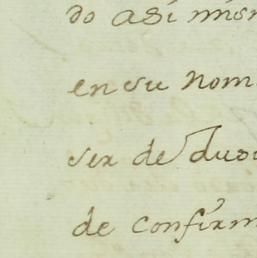 do asi mism
en su nom
ser de dudu
de confirm